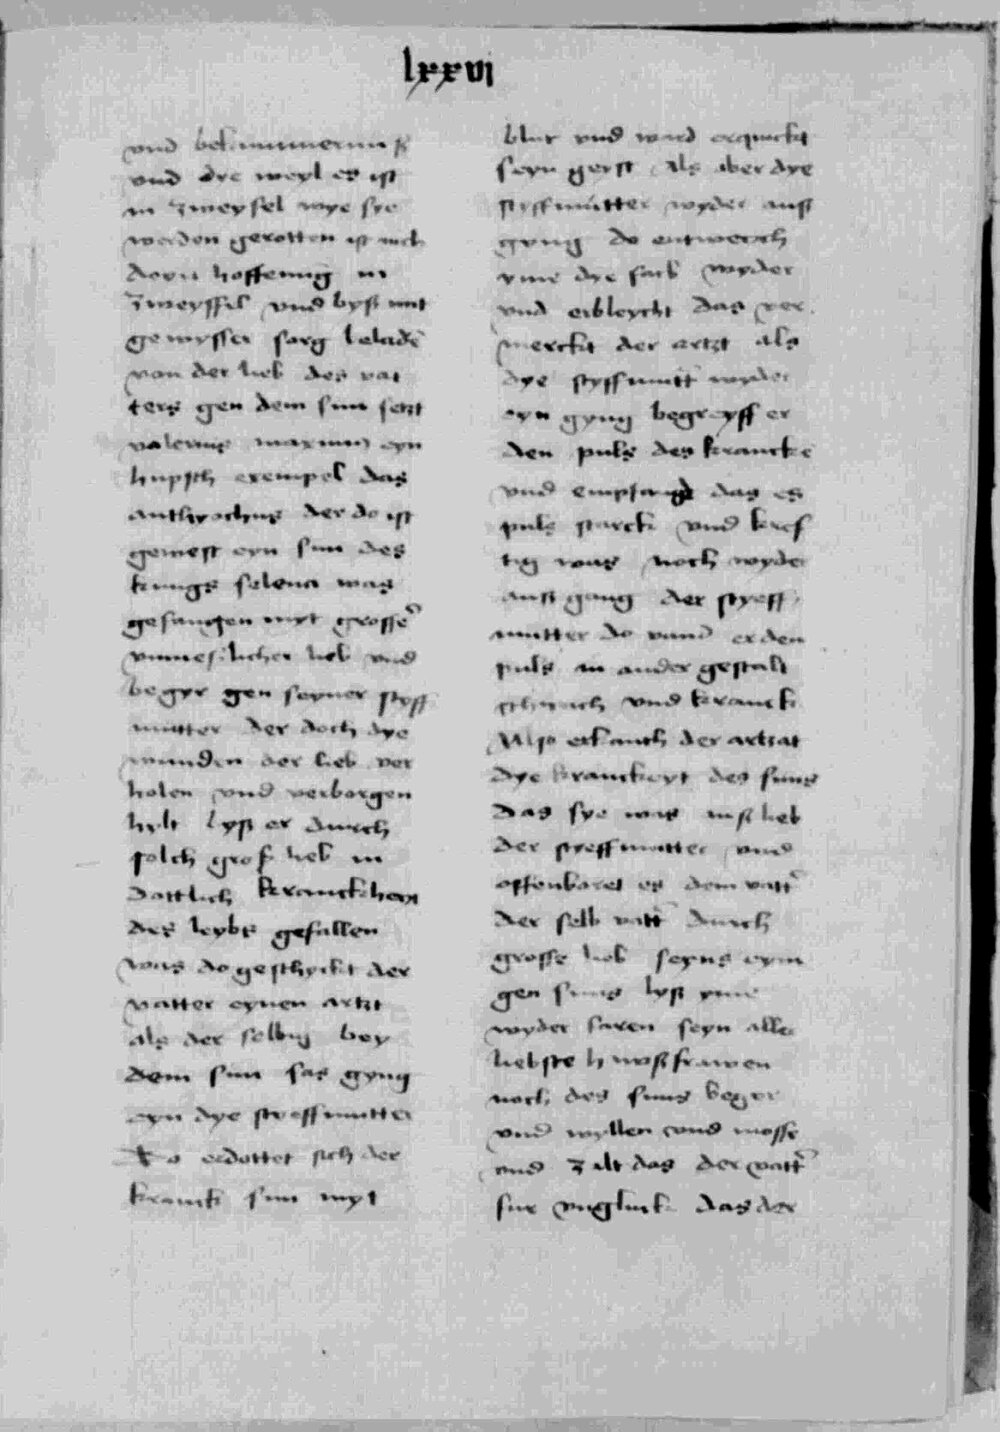 lxxvj
vnd bekummernuß
vnd dye weyl es ist
in zweyfel wye sye
werden gerotten ist mich
deyn hoffenung in
zweyffel vnd byst mit
gewysser sorg beladē
von der lieb des vat
ters gen dem sun setzt
valerius maximus eyn
hupsch exempel das
anthyochus der do ist
gewest eyn sun des
kunigs seleuci was
gefangen myt grosser
vnmeslicher lieb vnd
begyr gen seyner styff
mutter der doch dye
wunden der lieb ver
holen vnd verborgen
hylt lyß er durch
solch groß lieb in
dottlich kranckheyt
des leybs gefallen
was do geschyckt der
vatter eynen artzt
als der selbig bey
dem sun sas gyng
eyn dye steyffmutter
Do erdottet sich der
kranck sun myt
blut vnd ward erquickt
seyn geyst Als aber dye
styffmutter wyder auß
gyng do entweych
yme dye farb wyder
vnd erbleycht das ver
merckt der artzt als
dye styffmutt wyder
eyn gyng begreyff er
den puls des krancke
vnd empfand das es
puls starck vnd kref
tig was noch wyder
auß gang der styeff
mutter do vand er den
puls in ander gestalt
schwach vnd kranck
Also erkanth der artzat
dye kranckeyt des suns
das sye was auß lieb
der styeffmutter vnd
offenbaret es dem vatt
der selb vatt durch
grosse lieb seyns eyni
gen suns lyß yme
wyder faren seyn aller
liebste haußfrawen
noch des suns beger
vnd wyllen vnd mosse
vnd zalt das der vatt
fur vngluck das der